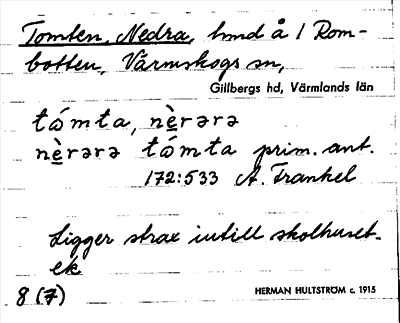 Tomten, Nedra, hmd å 1 Rom-
botten, Värmskogs sn,
Gillbergs hd, Värmlands län
tómta, nèrərə
nèrərə tómta prim. ant.
172:533 A. Frankel
Ligger strax intill skolhuset.
ek
8 (7)
HERMAN HULTSTRÖM c. 1915